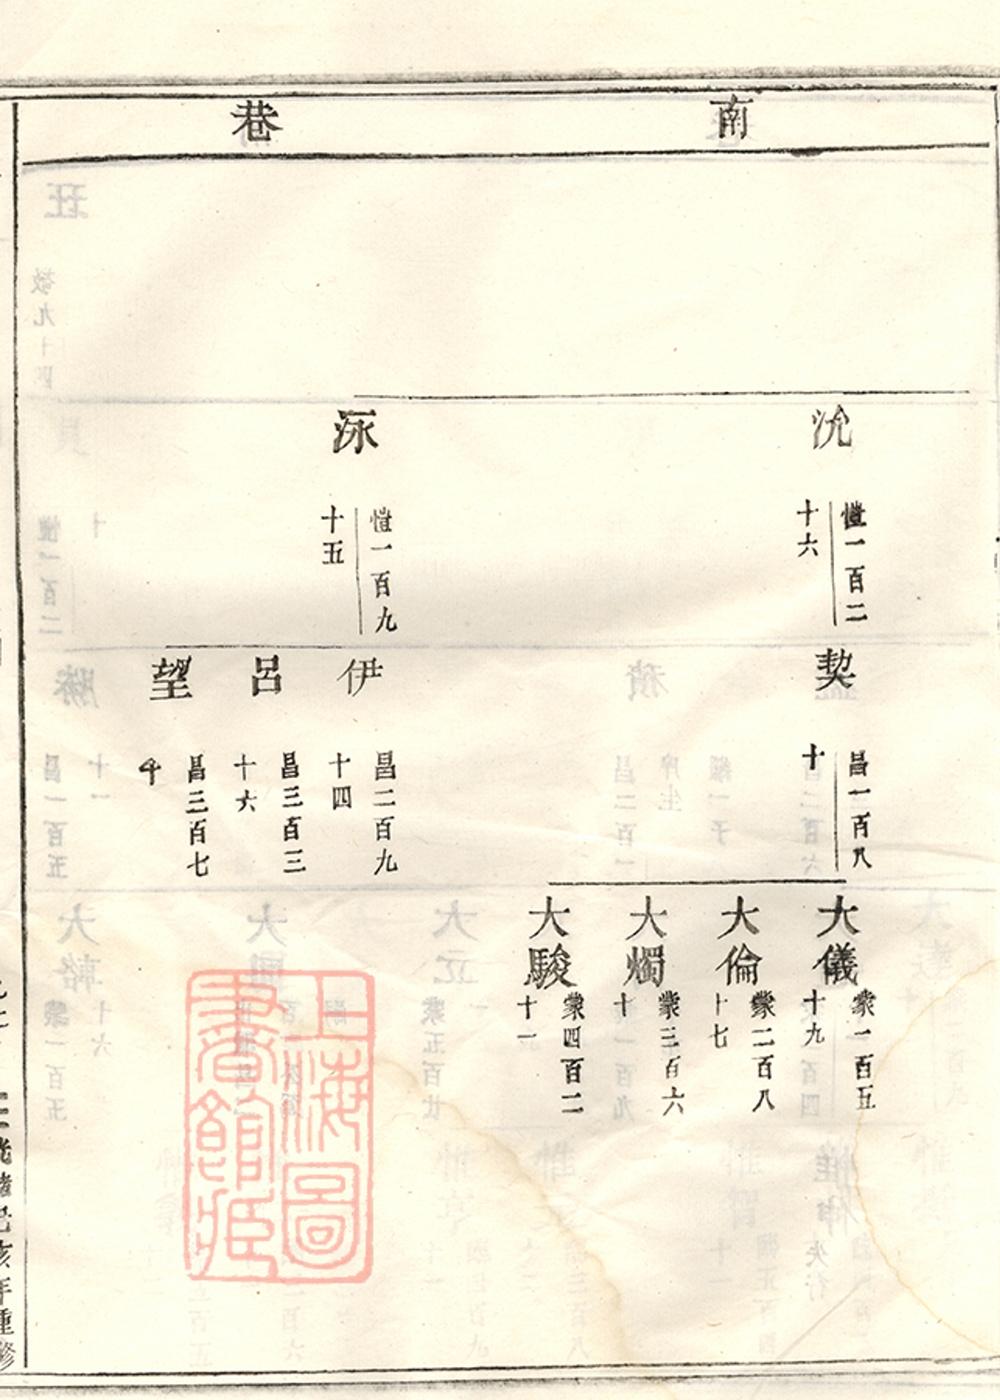 南巷
沇
愷一百二
十六
泳
愷一百九
十五
契
昌一百八
十
伊
昌二百九
十四
呂
昌三百三
十六
望
昌三百七
十
大儀
業一百五
十九
大倫
業二百八
十七
大燭
業三百六
十
大駿
業四百二
十一
上海圖
書館藏
亥年重修